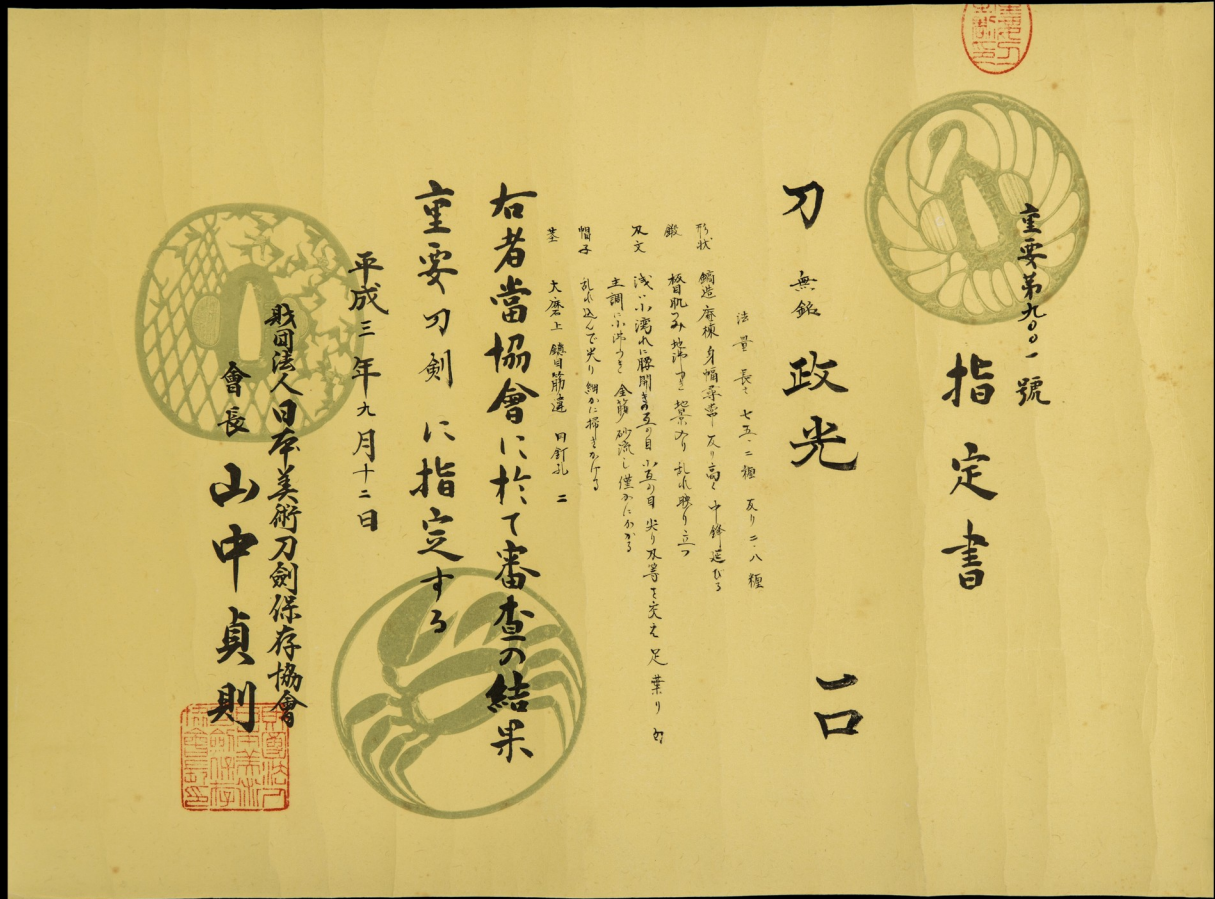 重要第九〇〇一號
指定書
刀 無銘 政光 一口
法量 長さ 七五・二糎 反り 二・八糎
形状 鎬造 庵棟 身幅尋常 反り高く 中鋒延びる
鍛 板目肌つみ 地沸つき 地景入り 乱れ映り立つ
刃文 浅い小湾れに腰開きの互の目 小互の目 尖り刃等を交え 足 葉入り 匂
主調に小沸つき 金筋 砂流し僅かにかかる
帽子 乱れ込んで尖り 細かに掃きかける
茎 大磨上 鑢目筋違 目釘孔 二
右者當協會に於て審査の結果
重要刀剣に指定する
平成三年九月十二日
財団法人日本美術刀劍保存協會
會長 山中貞則